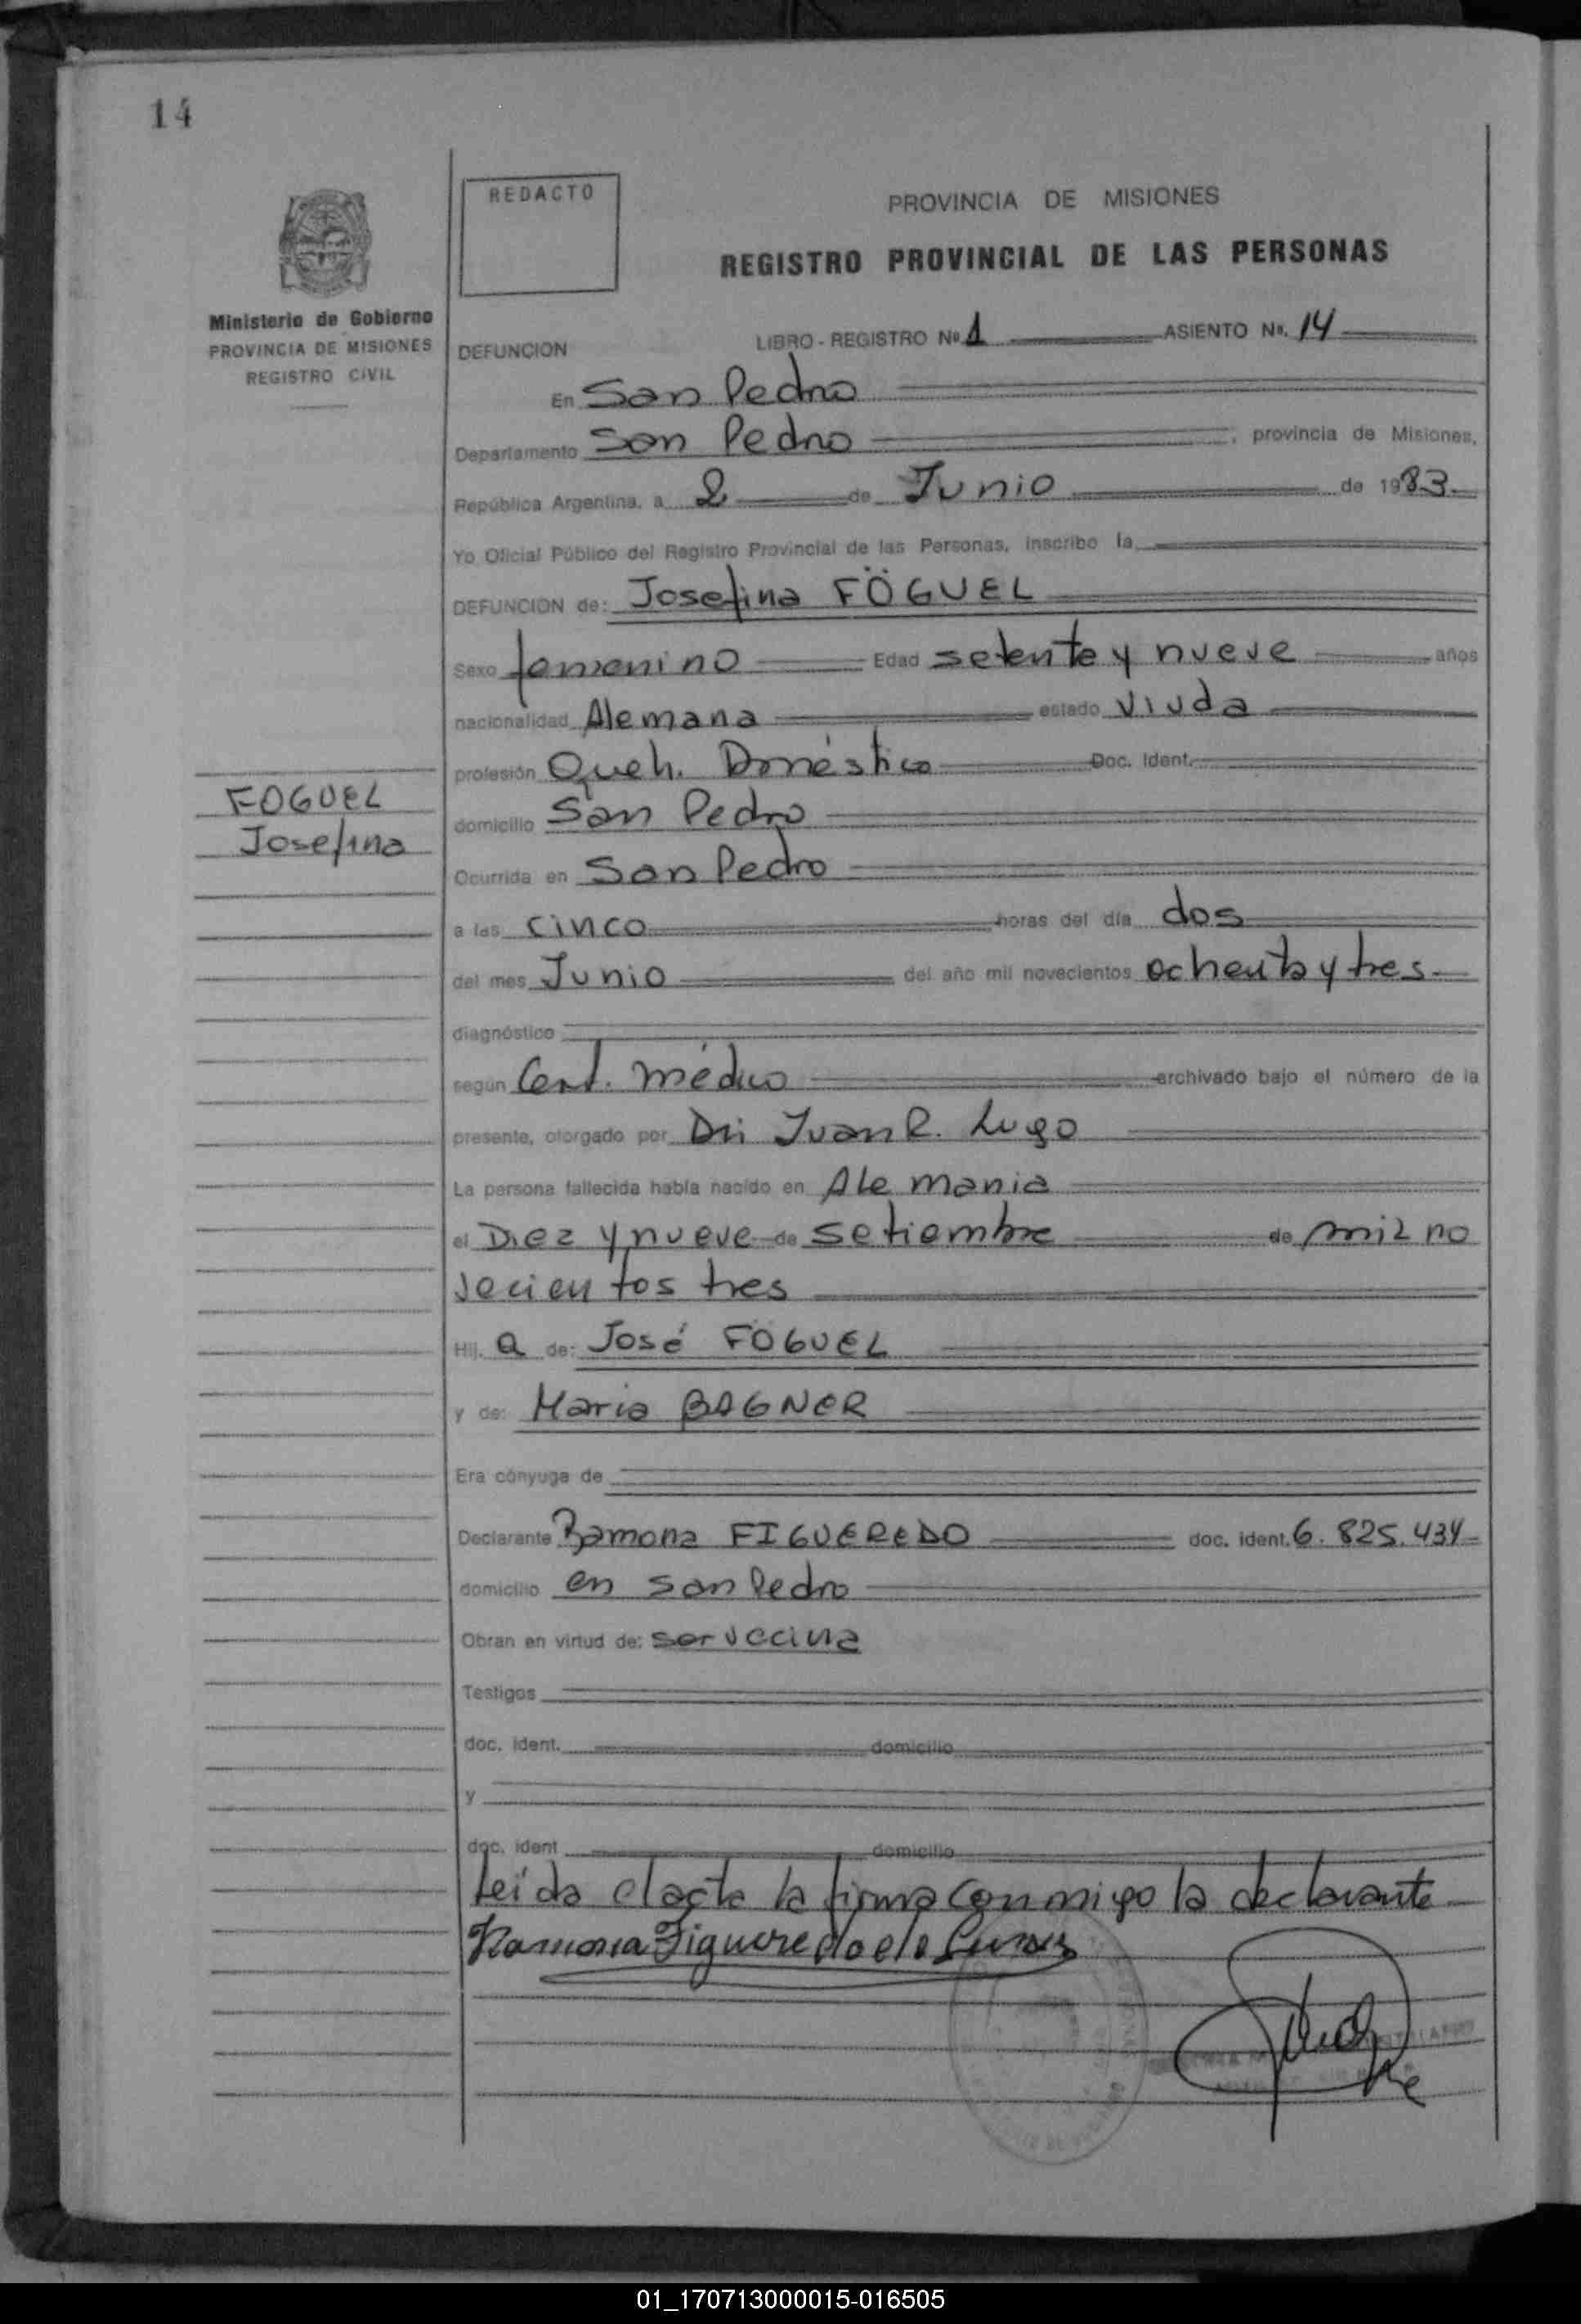 14
REDACTO
PROVINCIA DE MISIONES
REGISTRO PROVINCIAL DE LAS PERSONAS
Ministerio de Gobierno
PROVINCIA DE MISIONES
REGISTRO CIVIL
DEFUNCION LIBRO - REGISTRO Nº 1 ASIENTO Nº. 14
En San Pedro
Departamento San Pedro, provincia de Misiones,
República Argentina, a 2 de Junio de 1983
Yo Oficial Público del Registro Provincial de las Personas, inscribo la
DEFUNCION de: Josefina FÖGUEL
Sexo femenino Edad setenta y nueve años
nacionalidad Alemana estado Viuda
profesión Queh. Doméstico Doc. Ident.
FOGUEL
Josefina
domicilio San Pedro
Ocurrida en San Pedro
a las cinco horas del día dos
del mes Junio del año mil novecientos ochenta y tres
diagnóstico
según Cert. médico archivado bajo el número de la
presente, otorgado por Dr: Juan R. Lugo
La persona fallecida había nacido en Alemania
el Diez y nueve de setiembre de mil no
vecientos tres
Hij. a de: José FOGUEL
y de: Maria BAGNER
Era cónyuge de
Declarante Ramona FIGUEREDO doc. ident. 6.825.434
domicilio en San Pedro
Obran en virtud de: ser vecina
Testigos
doc. ident. domicilio
y
doc. ident domicilio
Leída el acta la firma conmigo la declarante
Ramona Figueredo de
01_170713000015-016505